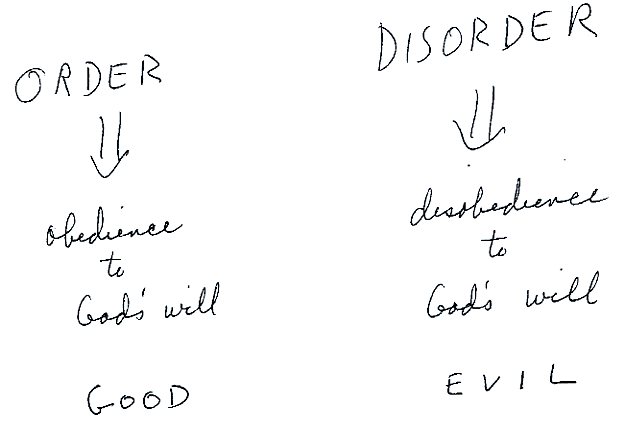 ORDER
⇓
obedience
to
God's will
GOOD
DISORDER
⇓
disobedience
to
God's will
EVIL